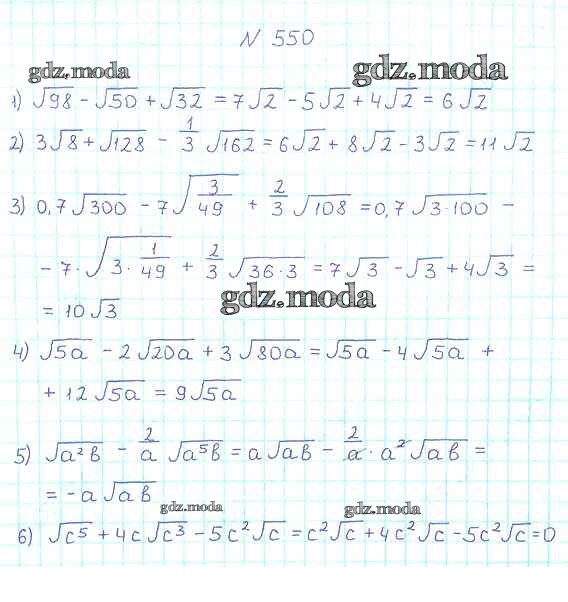 N 550
gdz.moda
gdz.moda
1) √98 - √50 + √32 = 7√2 - 5√2 + 4√2 = 6√2
2) 3√8 + √128 - 1/3 √162 = 6√2 + 8√2 - 3√2 = 11√2
3) 0,7√300 - 7√(3/49) + 2/3 √108 = 0,7√(3·100) -
- 7·√(3·1/49) + 2/3 √(36·3) = 7√3 - √3 + 4√3 =
gdz.moda
= 10√3
4) √(5a) - 2√(20a) + 3√(80a) = √(5a) - 4√(5a) +
+ 12√(5a) = 9√(5a)
5) √(a²b) - 2/a √(a⁵b) = a√(ab) - 2/a · a²√(ab) =
= -a√(ab)
gdz.moda
gdz.moda
6) √(c⁵) + 4c√(c³) - 5c²√c = c²√c + 4c²√c - 5c²√c = 0